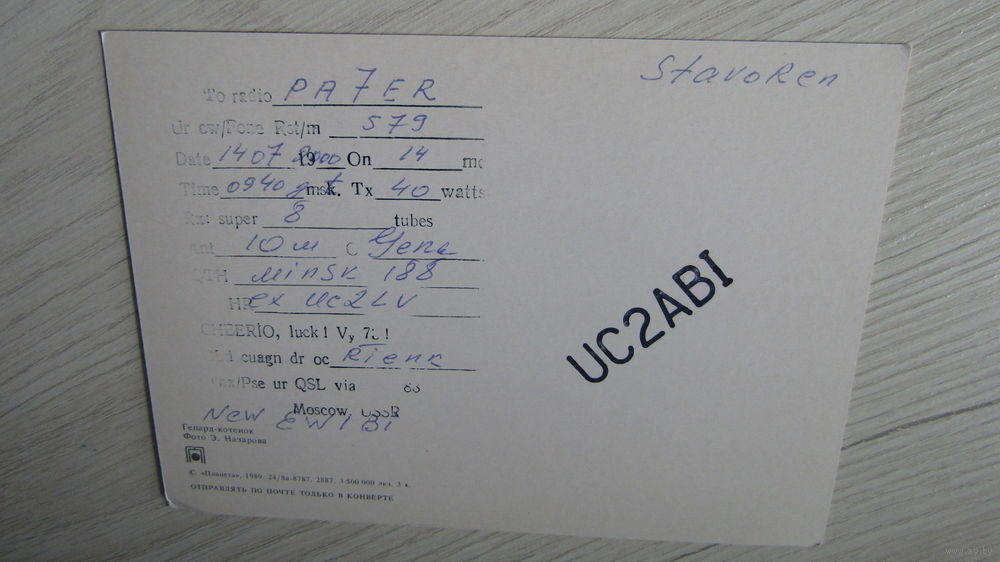 Stavoren
To radio PA7ER
Ur cw/Fone Rst/m 579
Date 1407 2000 19 On 14 mc
Time 0940 gmt msk. Tx 40 watts
Rx: super 8 tubes
ant 10 m
QTH Minsk 188
HR ex UC2LV
UC2ABI
CHEERIO, luck! Vy 73!
cuagn dr oc Rienk
Tnx/Pse ur QSL via 88
Moscow USSR
New EW1BI
Гепард-котенок
Фото Э. Назарова
© «Планета», 1989. 24/8а-8787. 2887. 3 500 000 экз. 3 к.
ОТПРАВЛЯТЬ ПО ПОЧТЕ ТОЛЬКО В КОНВЕРТЕ
www.ay.by